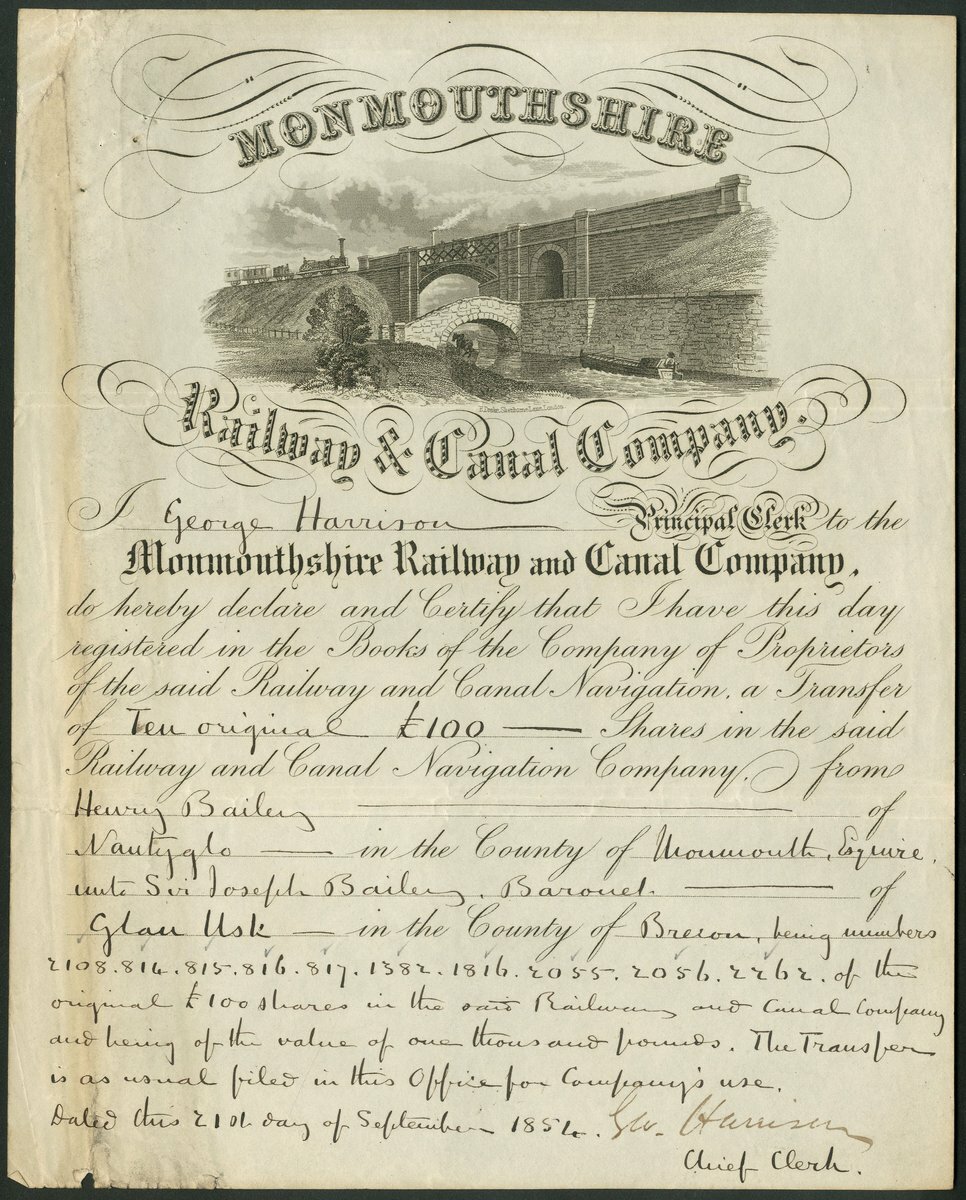 MONMOUTHSHIRE
Railway & Canal Company.
I George Harrison Principal Clerk to the
Monmouthshire Railway and Canal Company,
do hereby declare and Certify that I have this day
registered in the Books of the Company of Proprietors
of the said Railway and Canal Navigation, a Transfer
of Ten original £100 Shares in the said
Railway and Canal Navigation Company, from
Henry Bailey of
Nantyglo in the County of Monmouth, Esquire,
unto Sir Joseph Bailey, Baronet of
Glan Usk in the County of Brecon, being numbers
2108. 814. 815. 816. 817. 1382. 1816. 2055. 2056. 2262. of the
original £100 shares in the said Railway and Canal Company
and being of the value of one thousand pounds. The Transfer
is as usual filed in this Office for Company's use.
Dated this 21st day of September 1854. Geo. Harrison
Chief Clerk.